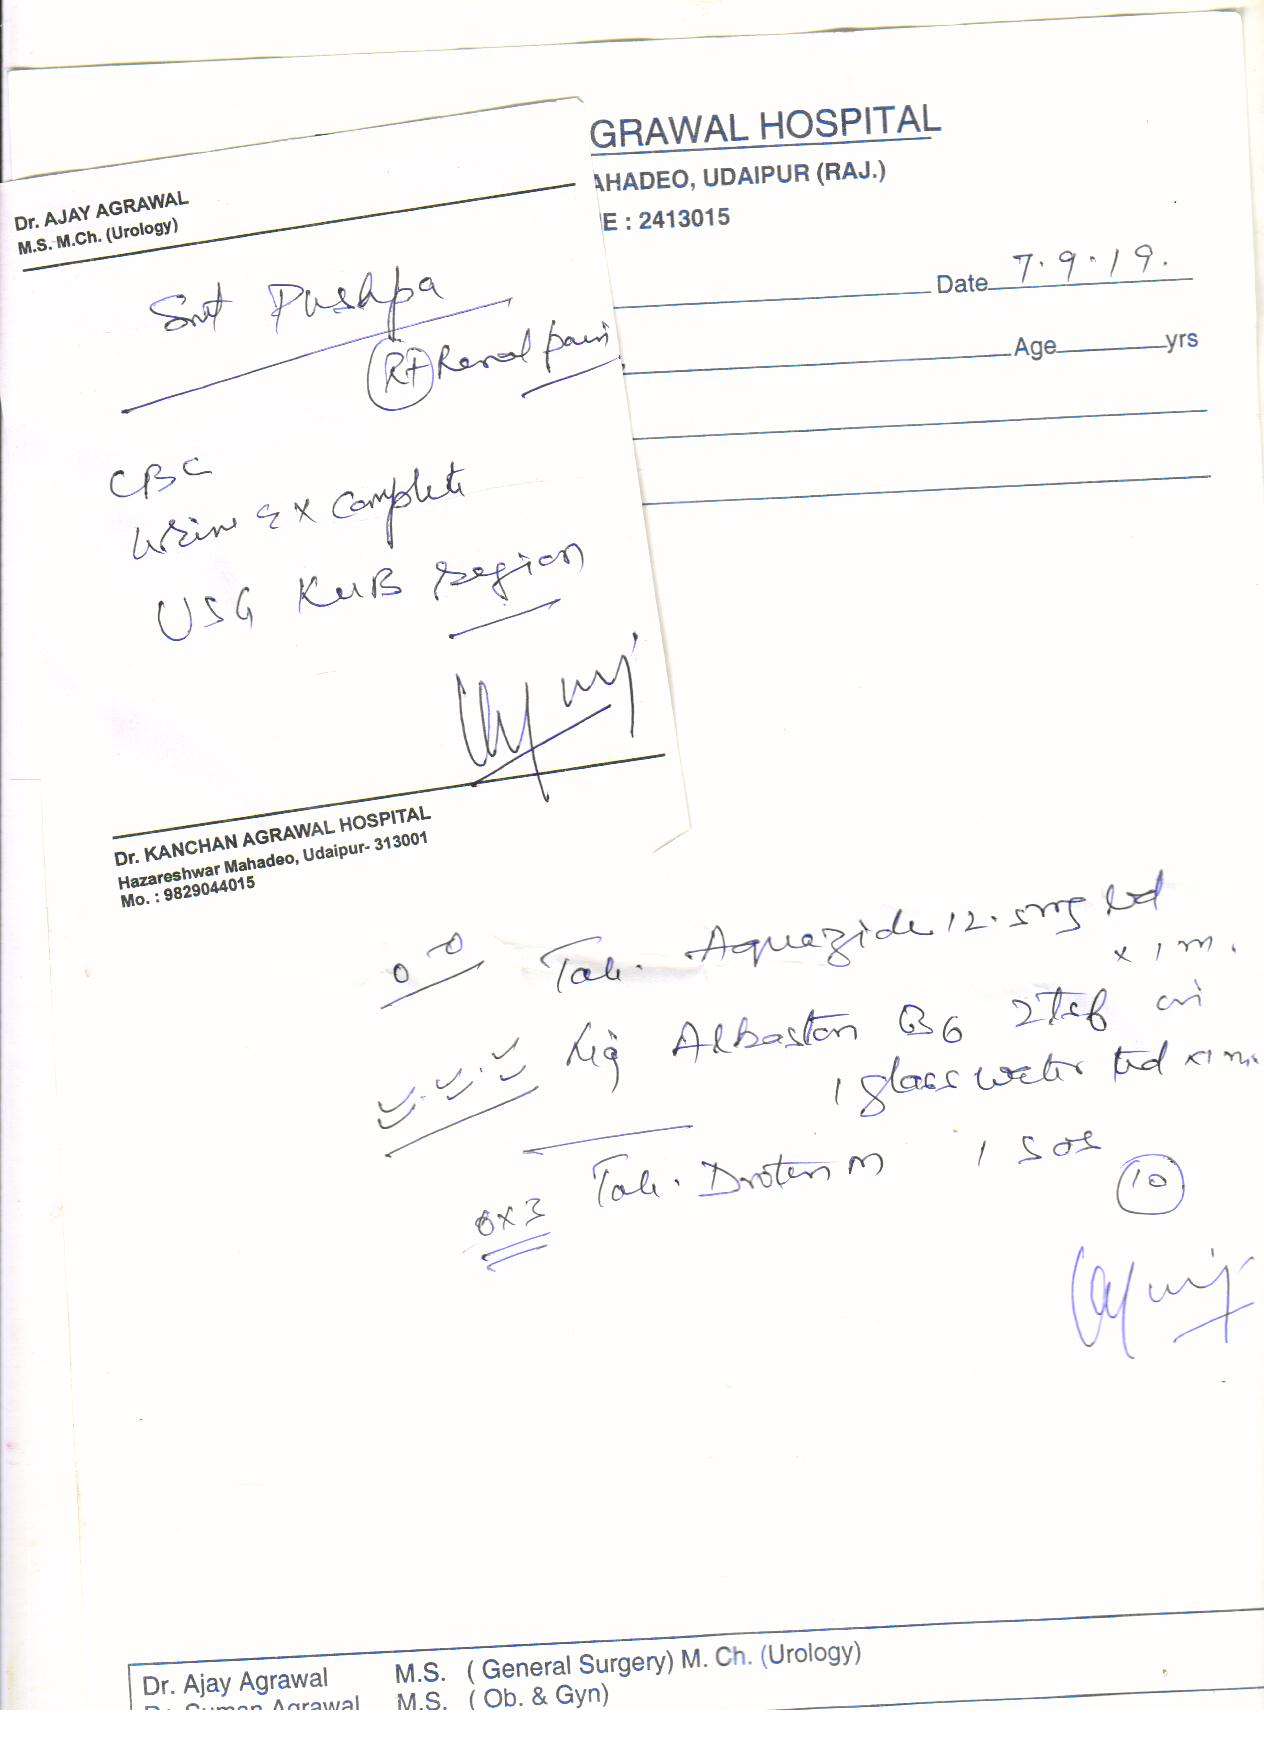 GRAWAL HOSPITAL
AHADEO, UDAIPUR (RAJ.)
E : 2413015
Date 7.9.19.
Age yrs
Dr. AJAY AGRAWAL
M.S. M.Ch. (Urology)
Smt Pushpa
Rt Renal pain
CBC
Urine Ex Complete
USG KUB region
Dr. KANCHAN AGRAWAL HOSPITAL
Hazareshwar Mahadeo, Udaipur- 313001
Mo. : 9829044015
Tab. Aquazide 12.5mg bd
x 1 m.
Liq Albaston B6 2 tsf in
1 glass water tid x1 m.
Tab. Drotin M 1 SOS
0x3
10
Dr. Ajay Agrawal M.S. ( General Surgery) M. Ch. (Urology)
Dr. Suman Agrawal M.S. ( Ob. & Gyn)